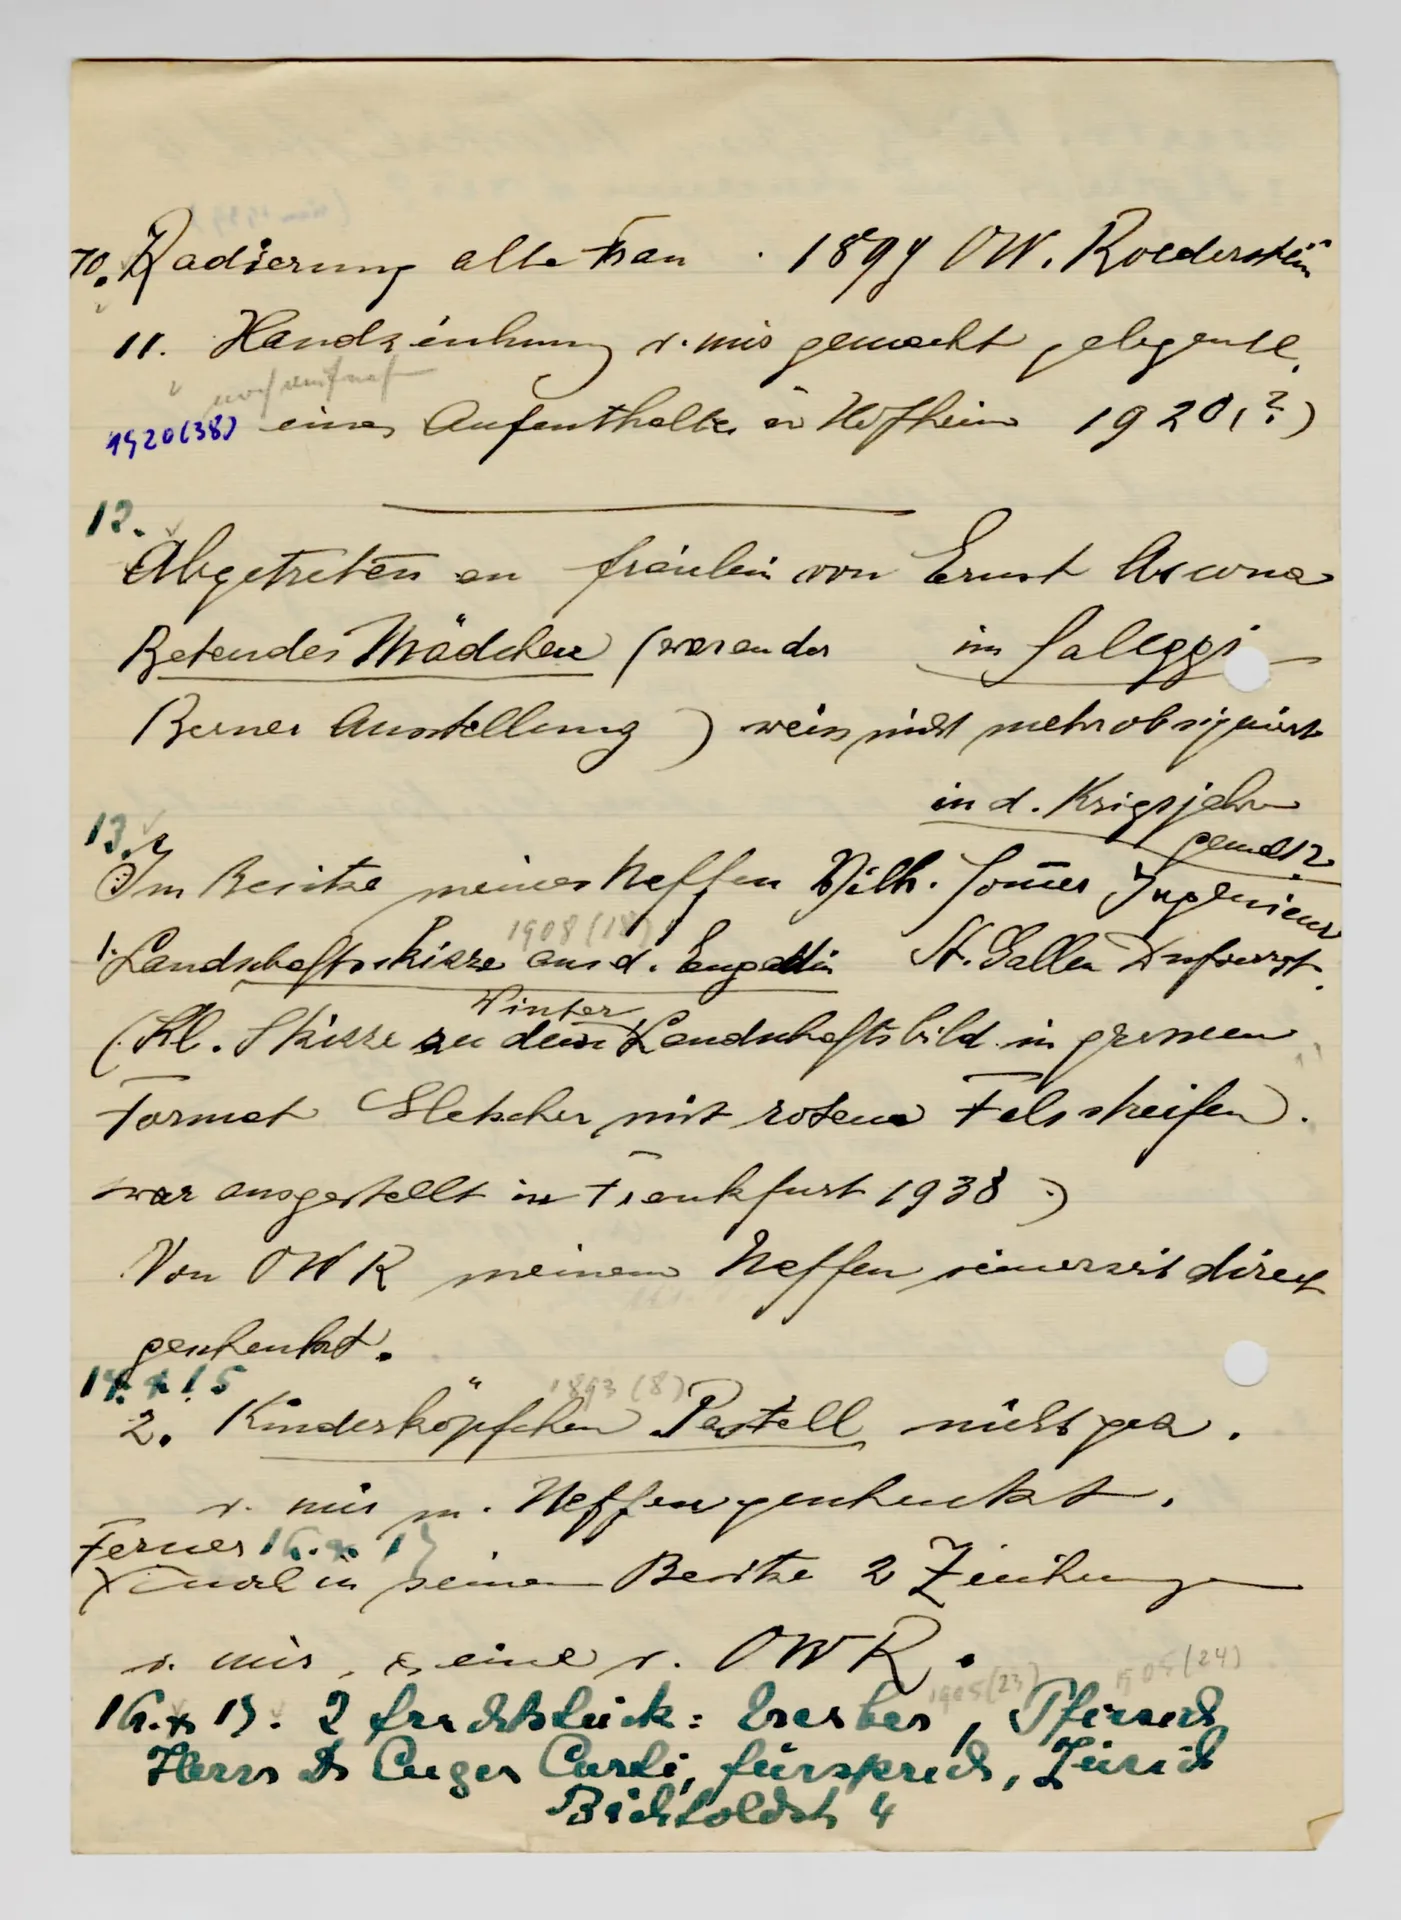 10. Radierung alte Frau . 1894 OW. Roederstein
11. Handzeichnung v. mir gemacht gelegentl.
noch
1920(38) eines Aufenthaltes in Hofheim 1920(?)
12.
Abgetreten an Fräulein von Ernst Ascona
Betendes Mädchen (war an der im Saleggi
Berner Ausstellung) weiss nicht mehr ob signiert
in d. Krigsjahren
gemalt?
13.
Im Besitze meines Neffen Wilh. Sommer Ingenieur
1908 (18)
1. Landschaftsskizze aus d. Engadin St. Gallen Dufourst.
Winter
(Kl. Skizze zu dem Landschaftsbild in grossem
Format Gletscher mit rotem Felsstreifen).
war ausgestellt in Frankfurt 1938)
Von OWR meinem Neffen seinerzeit direct
geschenkt.
14. & 15
1893 (8)
2. Kinderköpfchen Pastell nicht gez.
v. mir m. Neffen geschenkt.
Ferner 16. & 17
in seinem Besitze 2 Zeichnungen
v. mir, & eine v. OWR.
1905(23) 1905(24)
16. & 17. 2 Fruchtstück: Erdbeer, Pfirsich
Herrn Dr Eugen Curti, Fürsprech, Zürich
Bächtoldstr 4